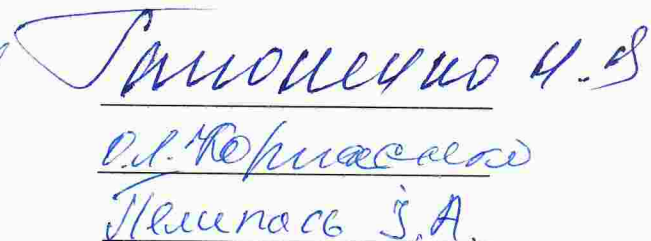 Гапоненко Н.Я
О.Л. Корнієнко
Пелипась З.А.